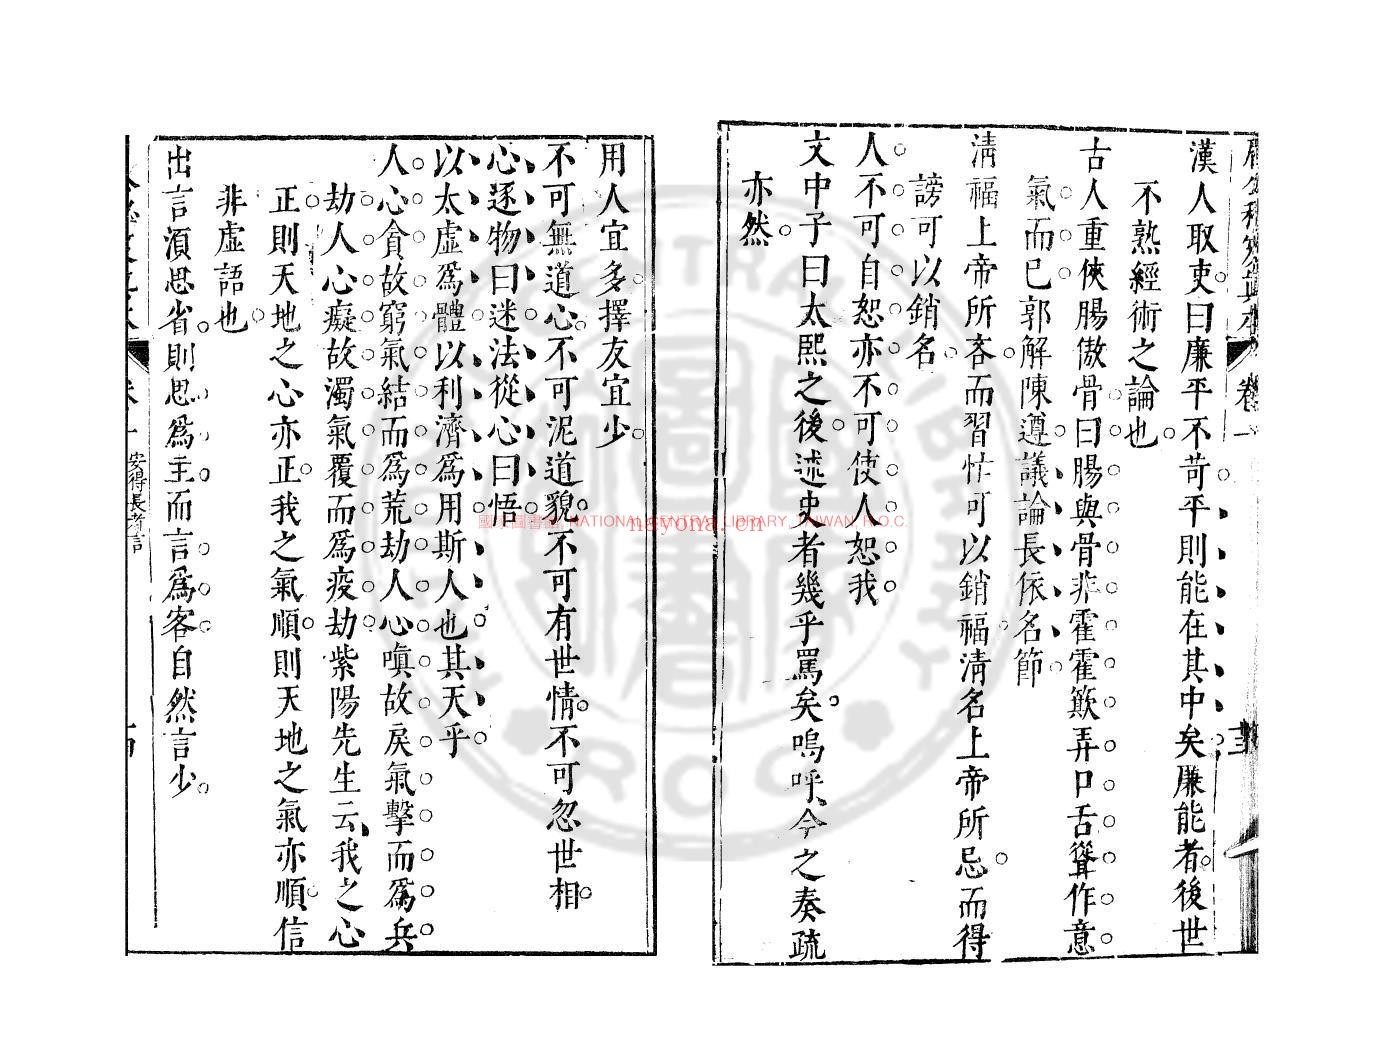 漢人取吏曰廉平不苛平則能在其中矣廉能者後世
不熟經術之論也
古人重俠腸傲骨曰腸與骨非霍霍欺弄口舌聳作意
氣而已郭解陳遵議論長依名節
清福上帝所吝而習忙可以銷福清名上帝所忌而得
謗可以銷名
人不可自恕亦不可使人恕我
文中子曰太熙之後述史者幾乎罵矣嗚呼今之奏疏
亦然
用人宜多擇友宜少
不可無道心不可泥道貌不可有世情不可忽世相
心逐物曰迷法從心曰悟
以太虛爲體以利濟爲用斯人也其天乎
人心貪故窮氣結而爲荒劫人心嗔故戾氣擊而爲兵
劫人心癡故濁氣覆而爲疫劫紫陽先生云我之心
正則天地之心亦正我之氣順則天地之氣亦順信
非虛語也
出言湏思省則思爲主而言爲客自然言少
安得長者言
國家圖書館, NATIONAL CENTRAL LIBRARY, TAIWAN, R.O.C.
nayona.cn